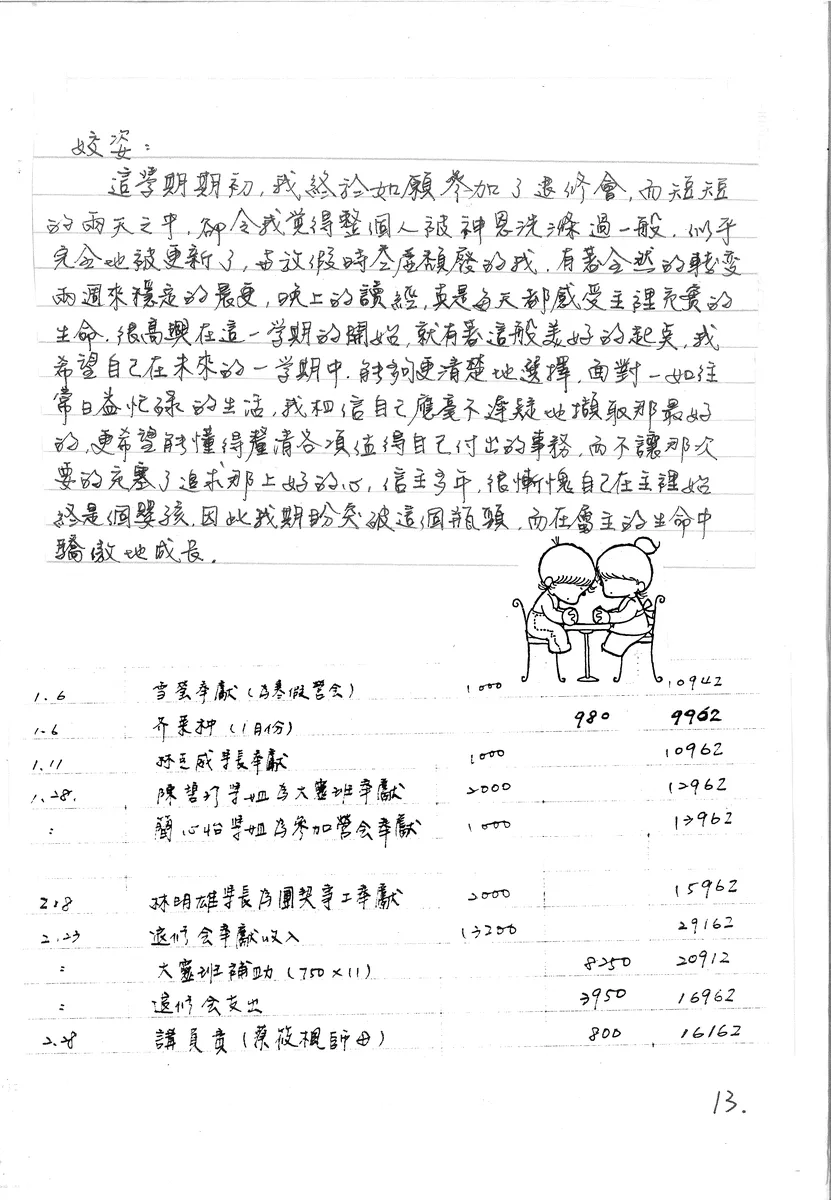 姣姿：
這學期期初，我終於如願參加了退修會，而短短
的兩天之中，卻令我覚得整個人被神恩洗滌過一般．似乎
完全地被更新了，与放假時空虛頹廢的我，有著全然的轉变
兩週來穩定的晨更，晚上的讀經，真是每天都感受主裡充實的
生命．很高興在這一學期的開始，就有著這般美好的起点，我
希望自己在未來的一学期中．能夠更清楚地選擇，面對一如往
常日益忙碌的生活，我相信自己應毫不遲疑地擷取那最好
的，更希望能懂得釐清各項值得自己付出的事務，而不讓那次
要的充塞了追求那上好的心，信主多年，很慚愧自己在主裡始
終是個嬰孩，因此我期盼突破這個瓶頸，而在屬主的生命中
驕傲地成長．
1.6 雪螢奉獻（為寒假營会） 1000 10942
1.6 芥菜种（1月份） 980 9962
1.11 林 威學長奉獻 1000 10962
1.28. 陳 學姐為大靈班奉獻 2000 12962
： 簡心怡學姐為參加營会奉獻 1000 13962
2.18 林明雄學長為團契事工奉獻 2000 15962
2.23 退修会奉獻收入 13200 29162
： 大靈班補助（750×11） 8250 20912
： 退修会支出 3950 16962
2.28 講員費（蔡筱楓師母） 800 16162
13.